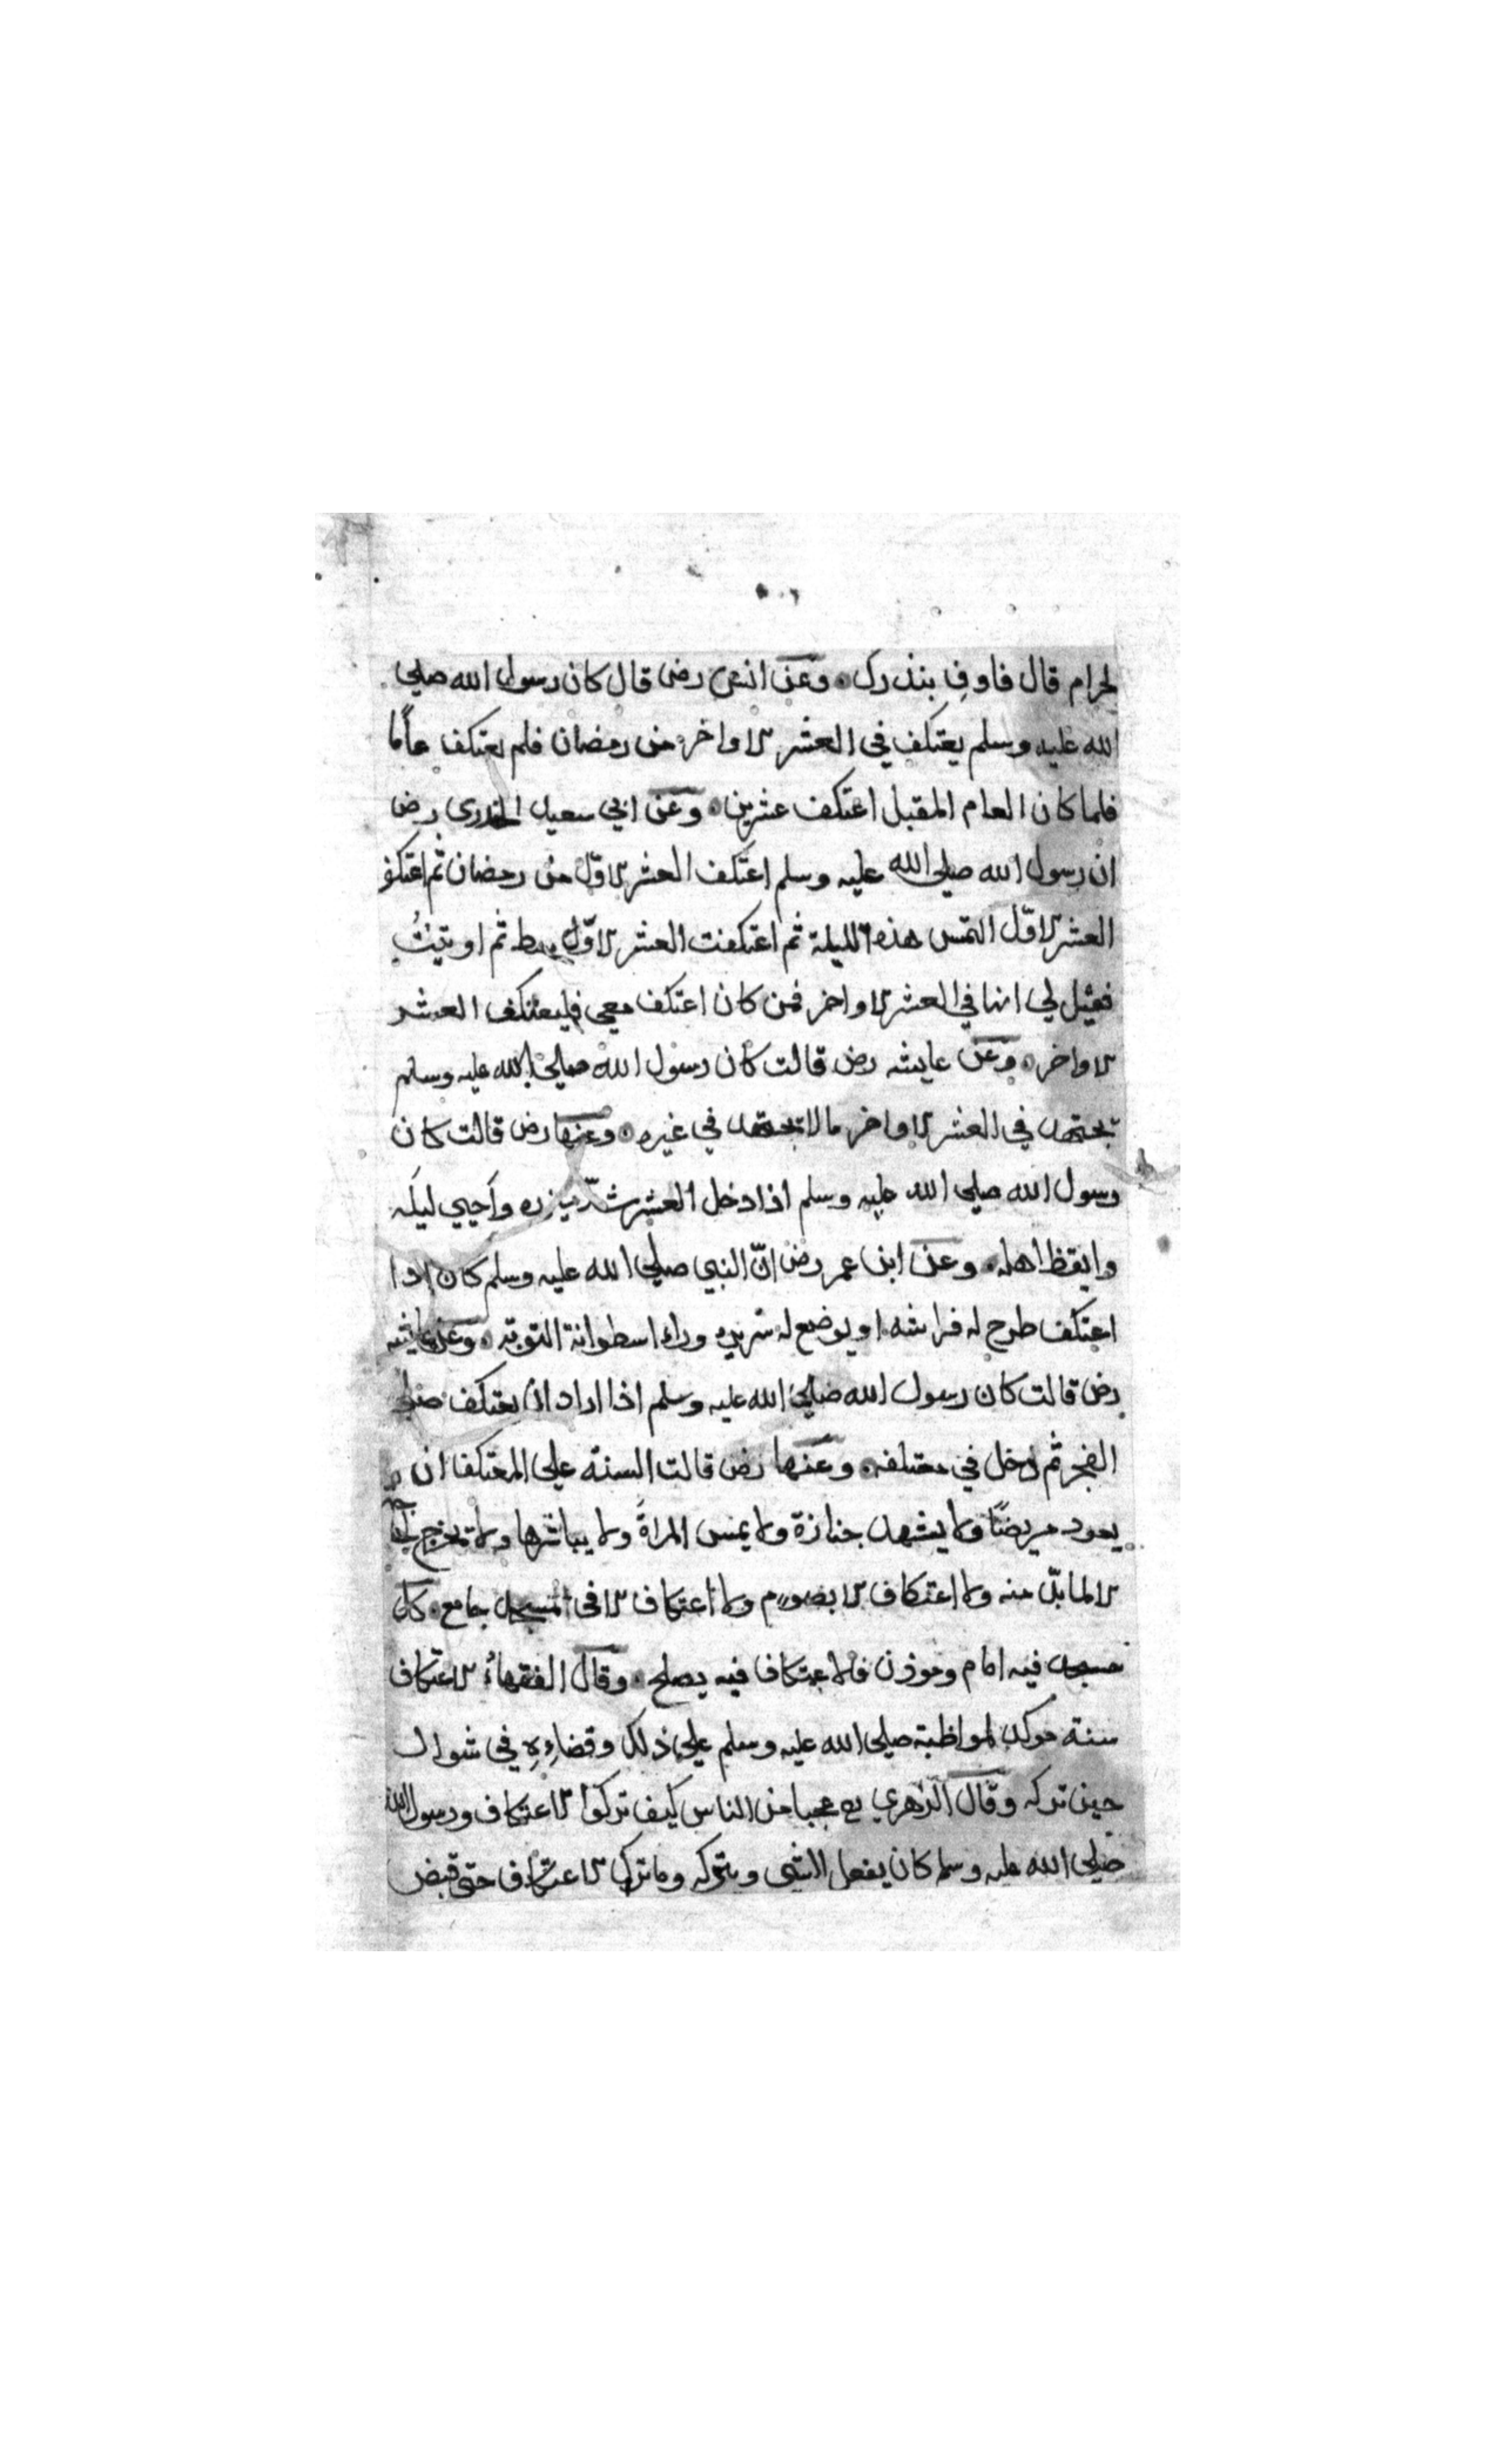 لحرام قال فاوفِ بنذرك وعن انس رضى قال كان رسول الله صلى
الله عليه وسلم يعتكف في العشر الاواخر من رمضان فلم يعتكف عامًا
فلما كان العام المقبل اعتكف عشرين وعن ابي سعيد الخدرى رض
ان رسول الله صلى الله عليه وسلم اعتكف العشر الاوّل من رمضان ثم اعتكف
العشر الاوّل التمس هذه الليلة ثم اعتكفت العشر الاوّل ثم اوتيتُ
فقيل لي انها في العشر الاواخر فمن كان اعتكف معى فليعتكف العشر
الاواخر وعن عايشه رض قالت كان رسول الله صلى الله عليه وسلم
يجتهد في العشر الاواخر مالا يجتهد في غيره وعنها رض قالت كان
رسول الله صلى الله عليه وسلم اذا دخل العشر شدّ ميزره واحيي ليله
وايقظ اهله وعن ابن عمر رض انّ النبي صلى الله عليه وسلم كان اذا
اعتكف طرح له فراشه او يوضع له سريره وراء اسطوانة التوبة وعن عايشه
رض قالت كان رسول الله صلى الله عليه وسلم اذا اراد ان يعتكف صلى
الفجر ثم دخل في معتكفه وعنها رض قالت السنة على المعتكف ان لا
يعود مريضًا ولا يشهد جنازة ولا يمس المراة ولا يباشرها ولا يخرج لحاجة
الا لما بدّ منه ولا اعتكاف الا بصوم ولا اعتكاف الا فى المسجد جامع كل
مسجد فيه امام وموذن فالاعتكاف فيه يصلح وقال الفقهاءُ الاعتكاف
سنة موكد لمواظبة صلى الله عليه وسلم على ذلك وقضاءِهِ في شوال
حين تركه وقال الزهري عجبا من الناس كيف تركوا الاعتكاف ورسول الله
صلى الله عليه وسلم كان يفعل الشى ويتركه وما ترك الاعتكاف حتى قبض